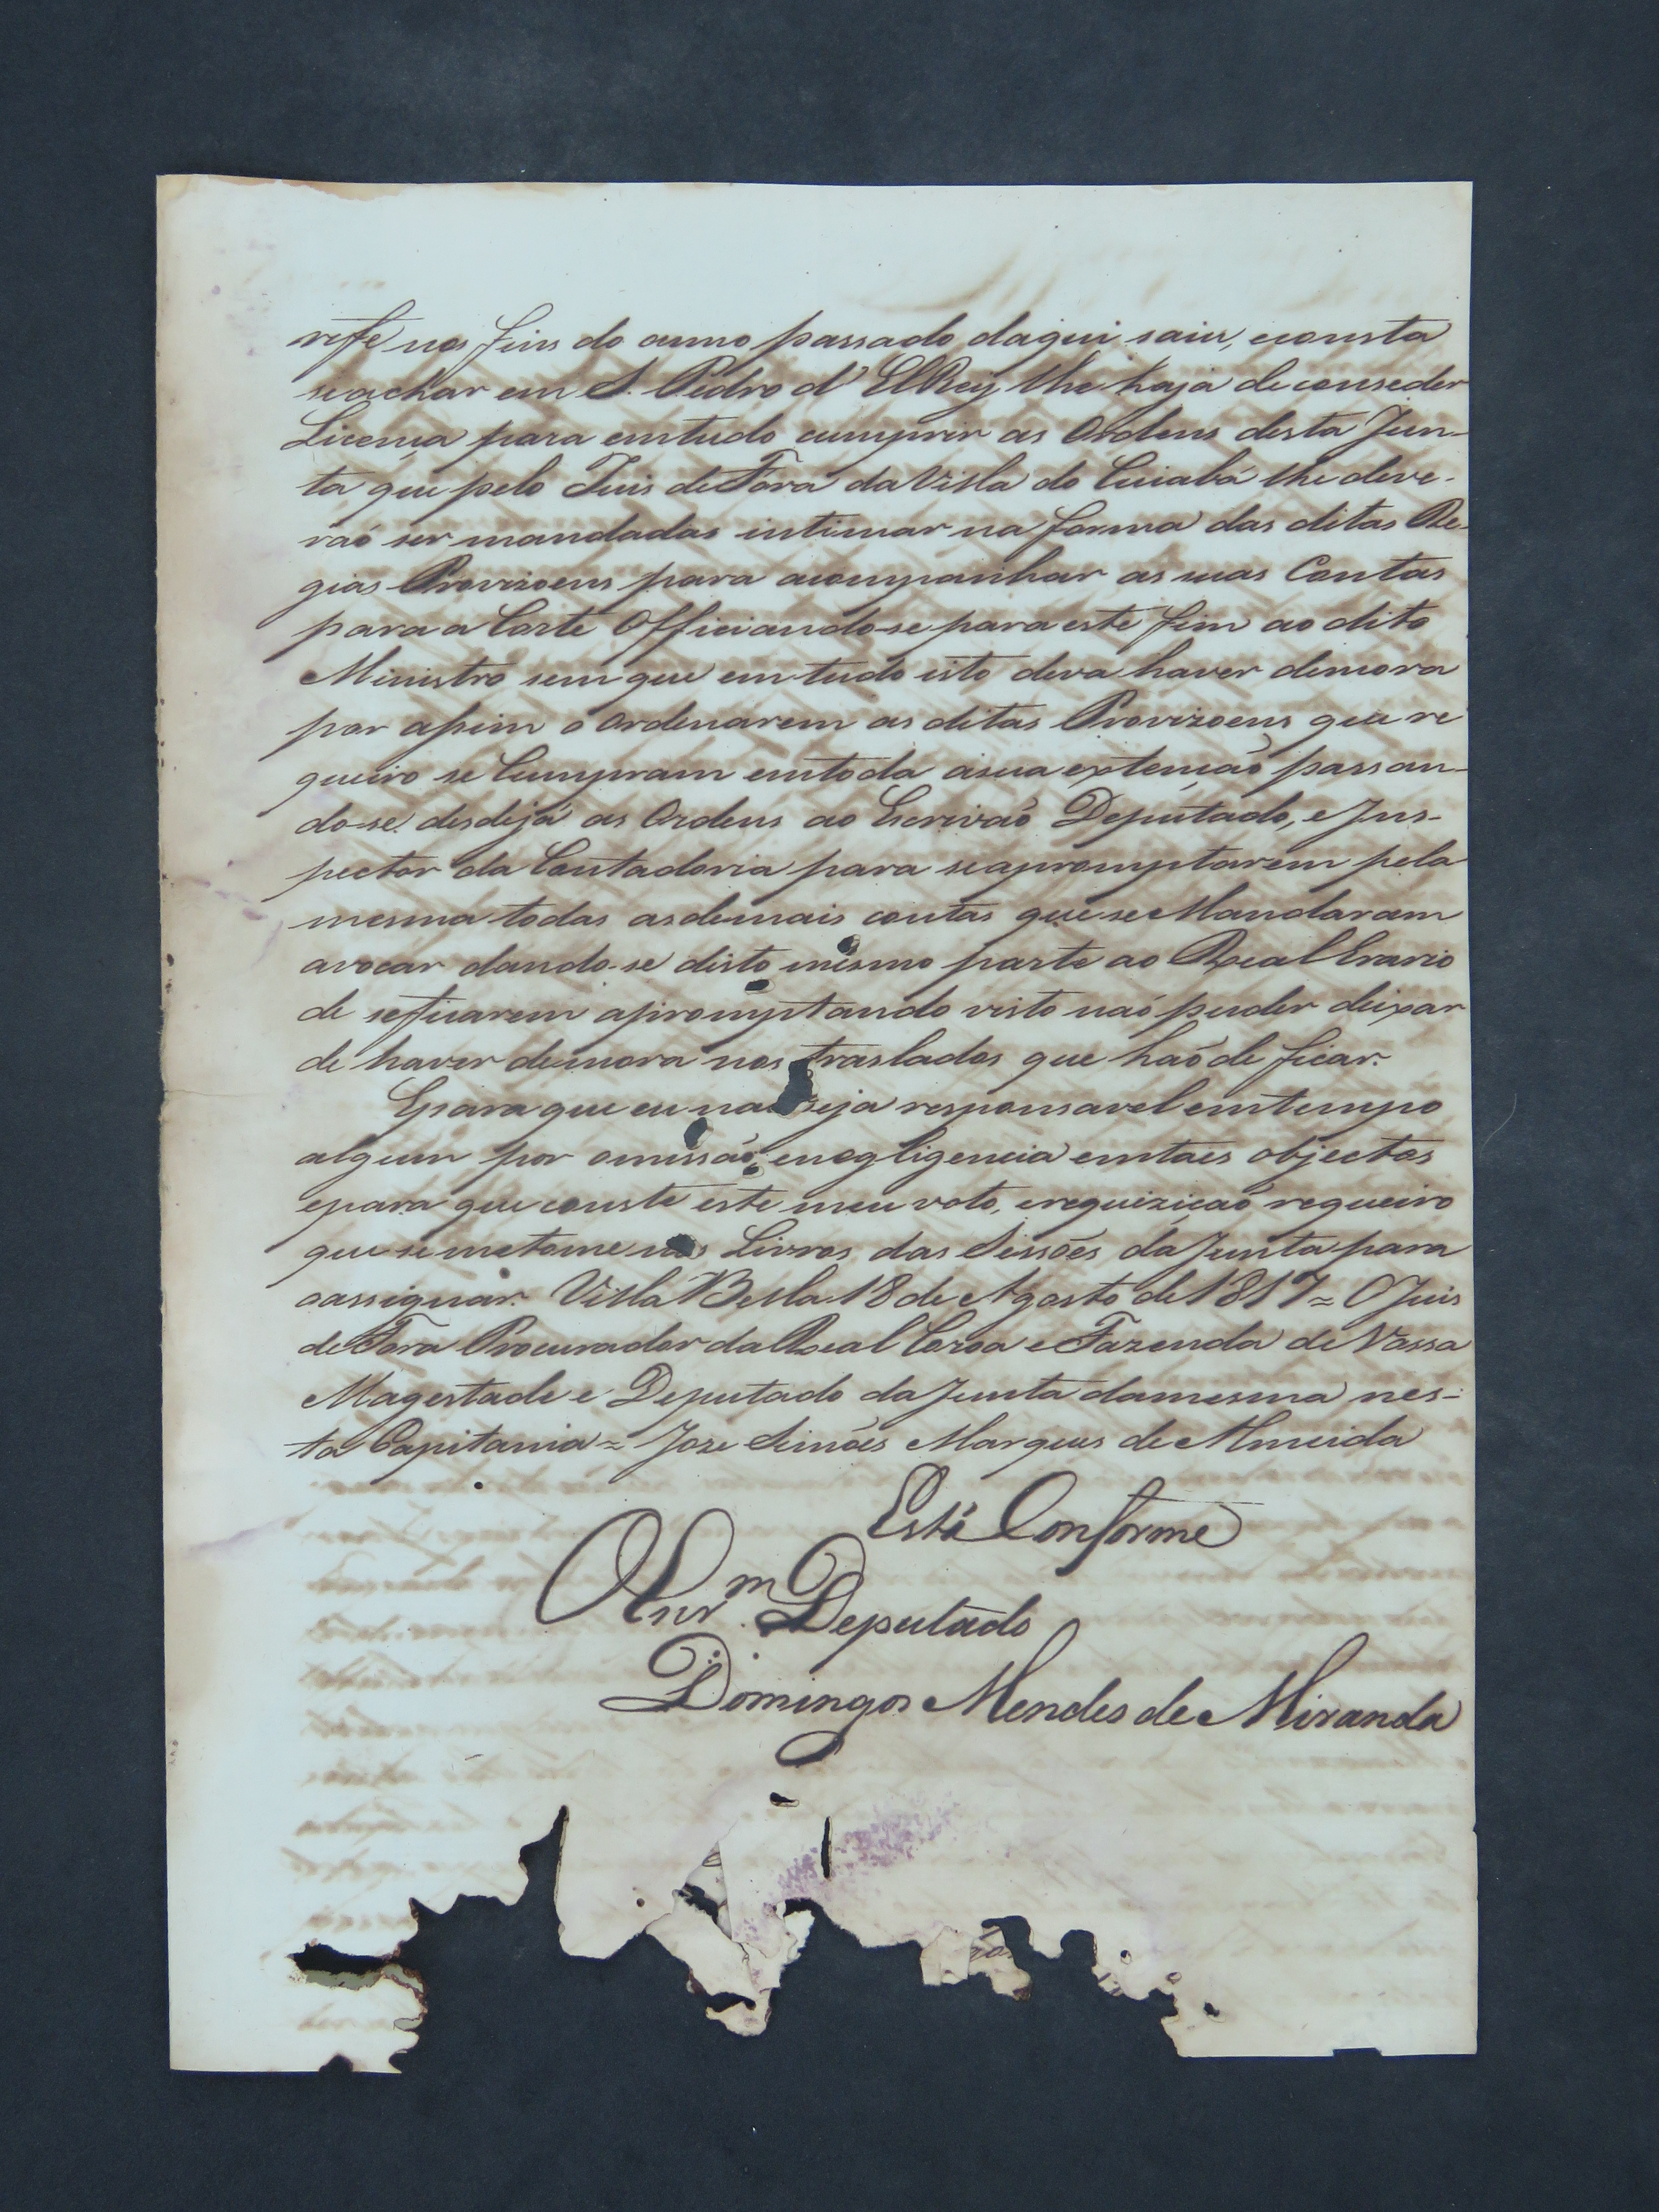 reffe nos fins do anno passado daqui saiu, econsta
seachar em S. Pedro d' ElRey lhe haja deconseder
Licença para emtudo cumprir as Ordens desta Jun-
ta que pelo Juis deFora daVilla do Cuiabá lhe deve-
raõ ser mandadas intimar na forma das ditas Re-
gias Provizoens para acompanhar as suas Contas
para a Corte Officiando-se para este fim ao dito
Ministro sem que em tudo isto deva haver demora
por assim o Ordenarem as ditas Provizoens que re
queiro se Cumpram emtoda asua extençaõ passan-
do-se desdejá as Ordens ao Escrivaõ Deputado, e Jns-
pector da Contadoria para seapromptarem pela
mesma todas asdemais contas que se Mandaram
avocar dando-se disto mesmo parte ao Real Erario
de seficarem apromptando visto naõ puder deixar
de haver demora nos traslados que haõ de ficar.
Epara que eu naõ seja responsavel emtempo
algum por omissaõ, enegligencia emtaes objectos
epara que conste este meu voto, erequiziçaõ requeiro
que semetome nos Livros das Sessões da Junta para
oassignar. Villa Bella 18 de Agosto de 1817 = O Juis
deFora Procurador da Real Coroa e Fazenda de Vossa
Magestade e Deputado da Junta damesma nes-
ta Capitania = Joze Simões Marques de Almeida
Está Conforme
O Escr.m Deputado
Domingos Mendes de Miranda